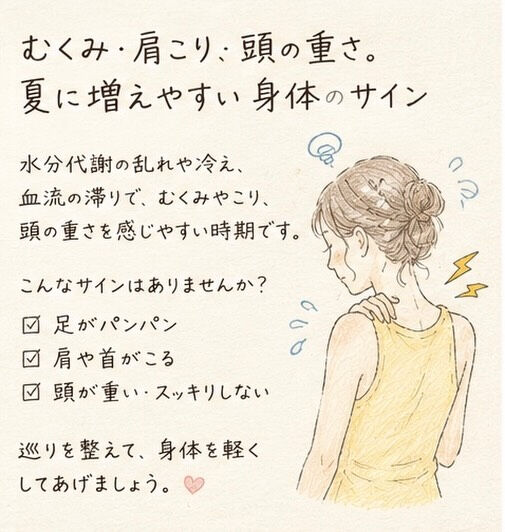 むくみ・肩こり、頭の重さ。
夏に増えやすい身体のサイン
水分代謝の乱れや冷え、
血流の滞りで、むくみやこり、
頭の重さを感じやすい時期です。
こんなサインはありませんか？
☑ 足がパンパン
☑ 肩や首がこる
☑ 頭が重い・スッキリしない
巡りを整えて、身体を軽く
してあげましょう。♡